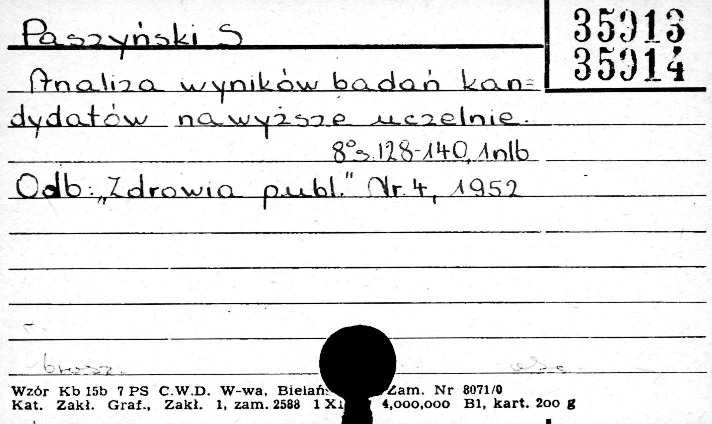 Paszyński S
35913
35914
Analiza wyników badań kan=
dydatów na wyższe uczelnie.
8° s. 128-140, 1 nlb
Odb: „Zdrowia publ." Nr. 4, 1952
brosz.
Wzór Kb 15b 7 PS C.W.D. W-wa, Bielań Zam. Nr 8071/0
Kat. Zakł. Graf., Zakł. 1, zam. 2588 1 XI 4,000,000 B1, kart. 200 g